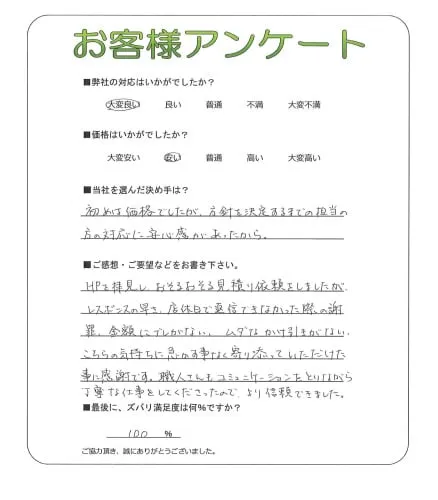 お客様アンケート
■弊社の対応はいかがでしたか？
大変良い 良い 普通 不満 大変不満
■価格はいかがでしたか？
大変安い 安い 普通 高い 大変高い
■当社を選んだ決め手は？
初めは価格でしたが、方針を決定するまでの担当の
方の対応に安心感があったから。
■ご感想・ご要望などをお書き下さい。
HPを拝見し、おそるおそる見積り依頼をしましたが、
レスポンスの早さ、店休日で返信できなかった際の謝
罪、金額にブレがない、ムダなかけ引きがない、
こちらの気持ちに急かす事なく寄り添っていただけた
事に感謝です。職人さんもコミュニケーションをとりながら
丁寧な仕事をしてくださったので、より信頼できました。
■最後に、ズバリ満足度は何%ですか？
100 %
ご協力頂き、誠にありがとうございました。